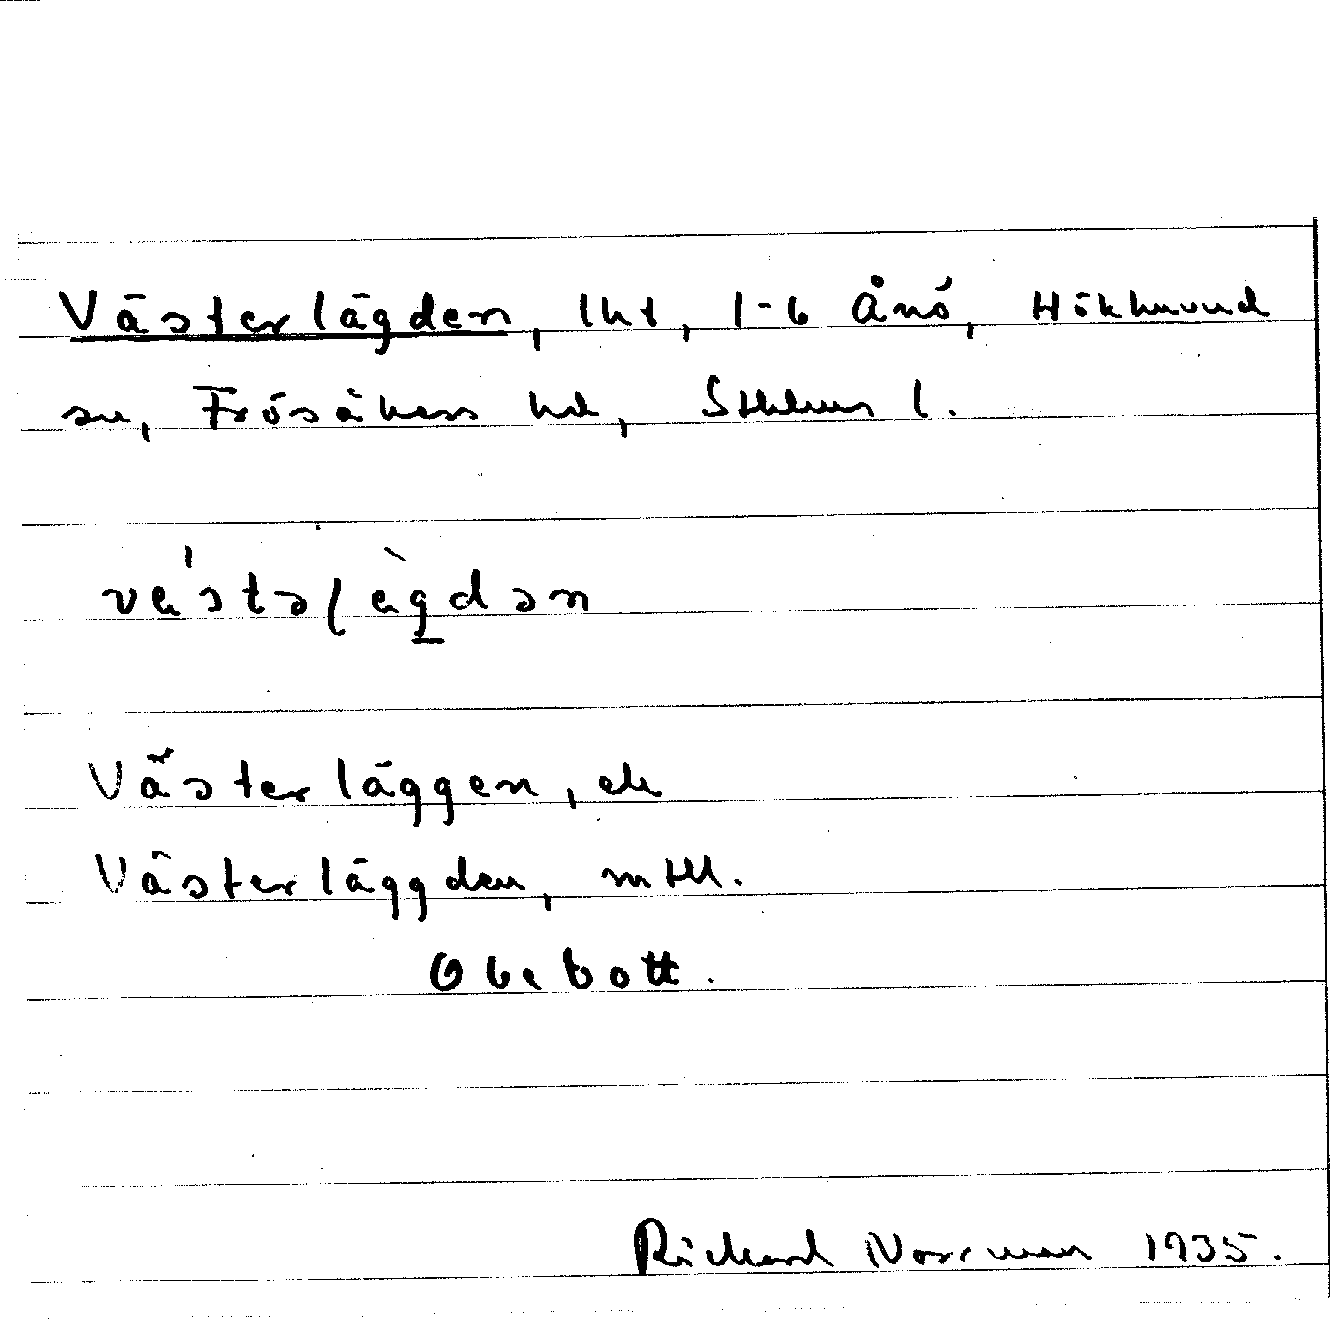 Västerlägden, lht, 1-6 Ånö, Hökhuvud
sn, Frösåkers hd, Sthlms l.
västəlägdən
Västerläggen, ek
Västerläggden, mtHl.
Obebott.
Rickard Norrman 1935.